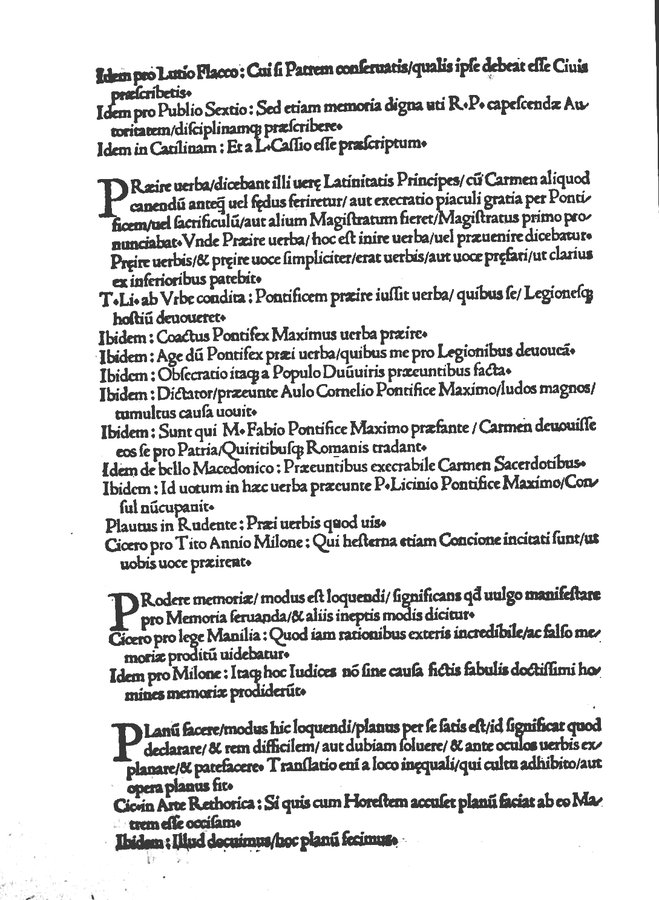 Idem pro Lutio Flacco: Cui ſi Patrem conſeruatis/qualis ipſe debeat eſſe Ciuis
præſcribetis.
Idem pro Publio Sextio: Sed etiam memoria digna uti R.P. capeſcendæ Au-
toritatem/diſciplinamꝗ præſcribere.
Idem in Catilinam: Et a L.Caſſio eſſe præſcriptum.
PRæire uerba/dicebant illi uerę Latinitatis Principes/ cū Carmen aliquod
canendū anteꝗ uel fędus feriretur/ aut execratio piaculi gratia per Ponti-
ficem/uel ſacrificulū/aut alium Magiſtratum fieret/Magiſtratus primo pro-
nunciabat. Vnde Præire uerba/ hoc eſt inire uerba/uel præuenire dicebatur.
Pręire uerbis/& pręire uoce ſimpliciter/erat uerbis/aut uoce pręfari/ut clarius
ex inferioribus patebit.
T.Li.ab Vrbe condita: Pontificem præire iuſſit uerba/ quibus ſe/ Legioneſꝗ
hoſtiū deuoueret.
Ibidem: Coactus Pontifex Maximus uerba præire.
Ibidem: Age dū Pontifex præi uerba/quibus me pro Legionibus deuoueā.
Ibidem: Obſecratio itaꝗ a Populo Duūuiris præeuntibus facta.
Ibidem: Dictator/præeunte Aulo Cornelio Pontifice Maximo/ludos magnos/
tumultus cauſa uouit.
Ibidem: Sunt qui M.Fabio Pontifice Maximo præfante / Carmen deuouiſſe
eos ſe pro Patria/Quiritibuſꝗ Romanis tradant.
Idem de bello Macedonico: Præeuntibus execrabile Carmen Sacerdotibus.
Ibidem: Id uotum in hæc uerba præeunte P.Licinio Pontifice Maximo/Con-
ſul nūcupanit.
Plautus in Rudente: Præi uerbis quod uis.
Cicero pro Tito Annio Milone: Qui heſterna etiam Concione incitati ſunt/ut
uobis uoce præirent.
PRodere memoriæ/ modus eſt loquendi/ ſignificans qđ uulgo manifeſtare
pro Memoria ſeruanda/& aliis ineptis modis dicitur.
Cicero pro lege Manilia: Quod iam rationibus exteris incredibile/ac falſo me-
moriæ proditū uidebatur.
Idem pro Milone: Itaꝗ hoc Iudices nō ſine cauſa fictis fabulis doctiſſimi ho-
mines memoriæ prodiderūt.
PLanū facere/modus hic loquendi/planus per ſe ſatis eſt/id ſignificat quod
declarare/ & rem difficilem/ aut dubiam ſoluere/ & ante oculos uerbis ex-
planare/& patefacere. Tranſlatio enī a loco inęquali/qui cultu adhibito/aut
opera planus fit.
Cic.in Arte Rethorica: Si quis cum Horeſtem accuſet planū faciat ab eo Ma-
trem eſſe occiſam.
Ibidem: Illud docuimus/hoc planū fecimus.